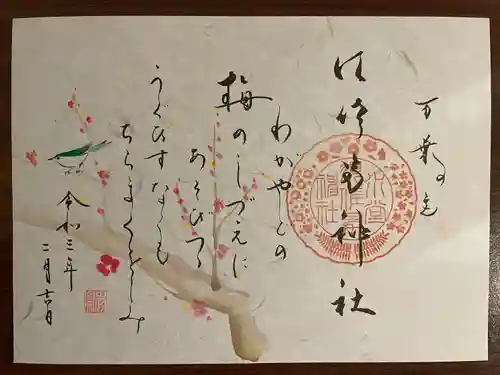 万葉の
神社
わがやどの
梅のしづえに
あそびつつ
うぐひすなくも
ちらまくをしみ
令和三年
二月吉日